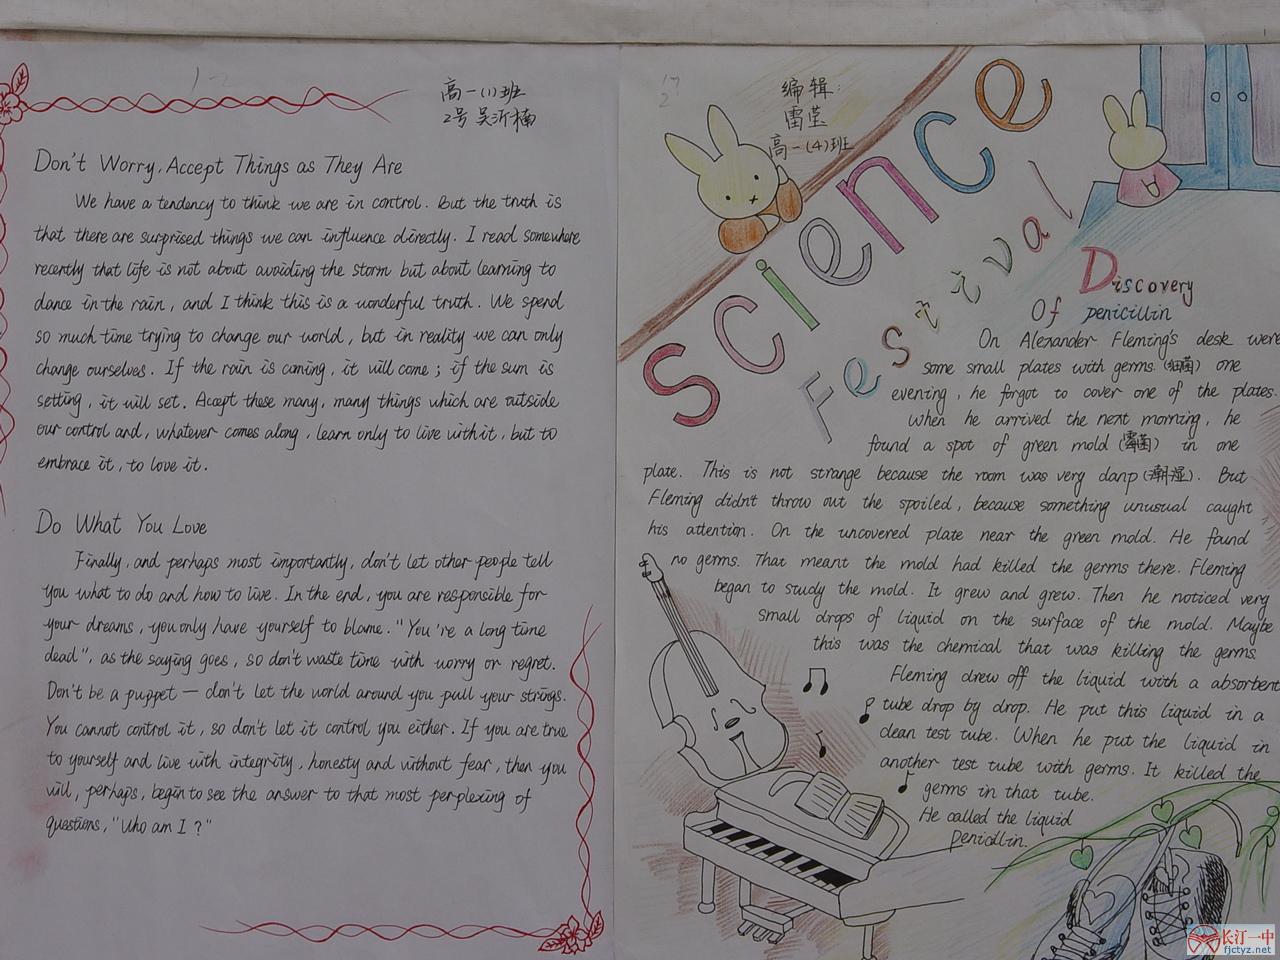 高一(1)班
2号 吴沂楠
Don't Worry, Accept Things as They Are
We have a tendency to think we are in control. But the truth is
that there are surprised things we can influence directly. I read somewhere
recently that life is not about avoiding the storm but about learning to
dance in the rain, and I think this is a wonderful truth. We spend
so much time trying to change our world, but in reality we can only
change ourselves. If the rain is coming, it will come; if the sun is
setting, it will set. Accept these many, many things which are outside
our control and, whatever comes along, learn only to live with it, but to
embrace it, to love it.
Do What You Love
Finally, and perhaps most importantly, don't let other people tell
you what to do and how to live. In the end, you are responsible for
your dreams, you only have yourself to blame. "You're a long time
dead", as the saying goes, so don't waste time with worry or regret.
Don't be a puppet — don't let the world around you pull your strings.
You cannot control it, so don't let it control you either. If you are true
to yourself and live with integrity, honesty and without fear, then you
will, perhaps, begin to see the answer to that most perplexing of
questions, "Who am I?"
编辑:
雷莹
高一(4)班
Science
Festival
Discovery
Of penicillin
On Alexander Fleming's desk were
some small plates with germs.(细菌) one
evening, he forgot to cover one of the plates.
When he arrived the next morning, he
found a spot of green mold (霉菌) in one
plate. This is not strange because the room was very damp (潮湿). But
Fleming didn't throw out the spoiled, because something unusual caught
his attention. On the uncovered plate near the green mold. He found
no germs. That meant the mold had killed the germs there. Fleming
began to study the mold. It grew and grew. Then he noticed very
small drops of liquid on the surface of the mold. Maybe
this was the chemical that was killing the germs.
Fleming drew off the liquid with a absorbent
tube drop by drop. He put this liquid in a
clean test tube. When he put the liquid in
another test tube with germs. It killed the
germs in that tube.
He called the liquid
Penicillin.
长汀一中
fjctyz.net